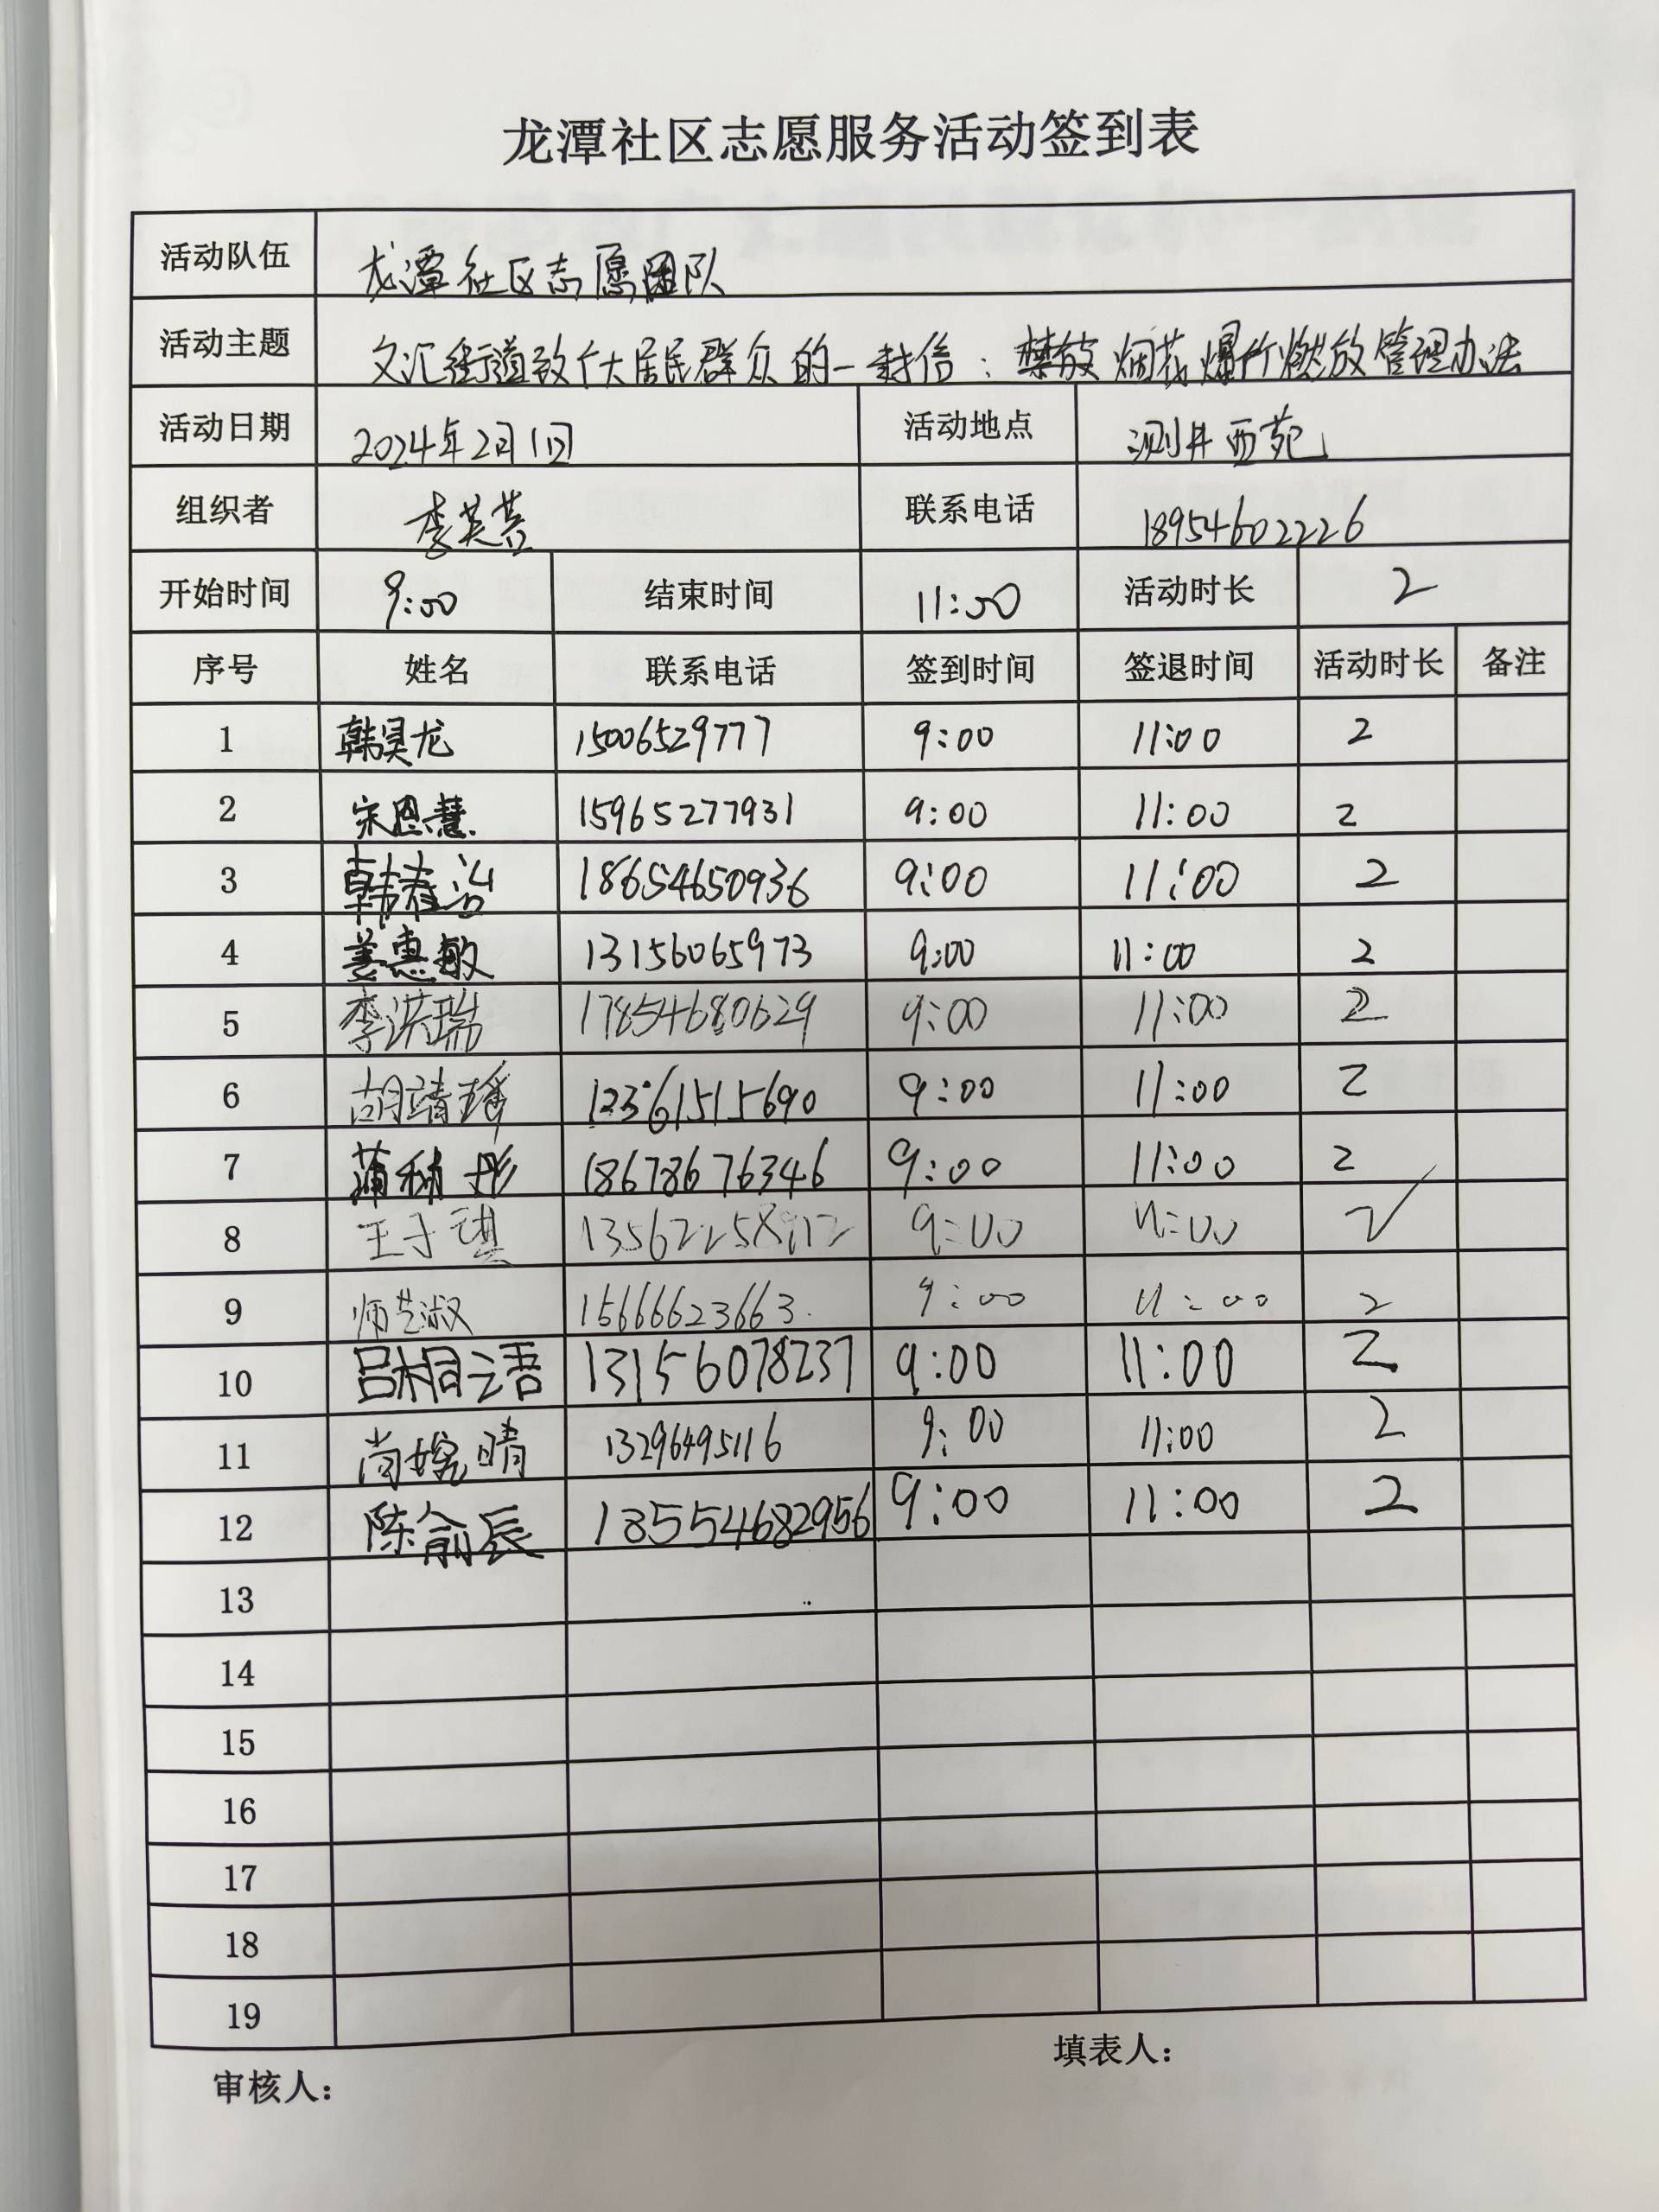 龙潭社区志愿服务活动签到表
活动队伍 龙潭社区志愿团队
活动主题 文汇街道致广大居民群众的一封信：禁放烟花爆竹燃放管理办法
活动日期 2024年2月1日 活动地点 测井西苑
组织者 李英 联系电话 18954602226
开始时间 9:00 结束时间 11:00 活动时长 2
序号 姓名 联系电话 签到时间 签退时间 活动时长 备注
1 韩昊龙 15006529777 9:00 11:00 2
2 宋恩慧 15965277931 9:00 11:00 2
3 韩春治 18654650936 9:00 11:00 2
4 姜惠敏 13156065973 9:00 11:00 2
5 李洪瑞 17854680629 9:00 11:00 2
6 胡靖璠 9:00 11:00 2
7 蒲秋彤 18678676346 9:00 11:00 2
8 王子琪 9:00 11:00 2
9 师艺淑 15666623663 9:00 11:00 2
10 吕桐语 13156078237 9:00 11:00 2
11 尚婉晴 13296495116 9:00 11:00 2
12 陈俞辰 18554682956 9:00 11:00 2
13
14
15
16
17
18
19
填表人：
审核人：